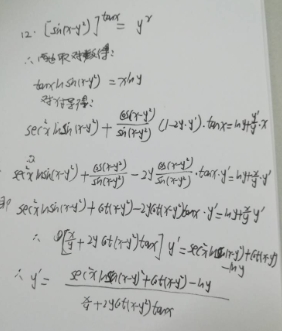 12. [sin(x-y²)]^tanx = y^x
∴ 两边取对数得:
tanx ln sin(x-y²) = x ln y
对x求导得:
sec²x ln sin(x-y²) + cos(x-y²)/sin(x-y²) (1-2y·y')·tanx = ln y + y'/y · x
sec²x ln sin(x-y²) + cos(x-y²)/sin(x-y²) - 2y cos(x-y²)/sin(x-y²) · tanx·y' = ln y + x/y · y'
即 sec²x ln sin(x-y²) + cot(x-y²) - 2y cot(x-y²) tanx · y' = ln y + x/y y'
∴ [x/y + 2y cot(x-y²) tanx] y' = sec²x ln sin(x-y²) + cot(x-y²) - ln y
∴ y' = sec²x ln sin(x-y²) + cot(x-y²) - ln y
x/y + 2y cot(x-y²) tanx